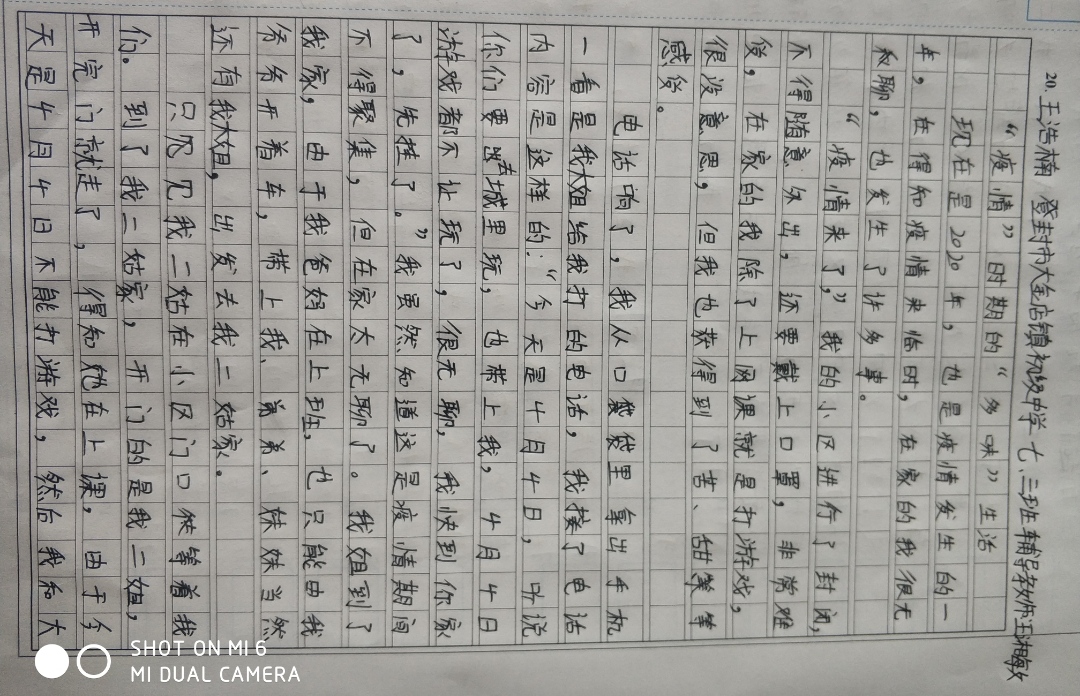 20. 王浩楠 登封市大金店镇初级中学 七、三班 辅导教师:王湘敏
“疫情”时期的“多味”生活
现在是2020年，也是疫情发生的一
年，在得知疫情来临时，在家的我很无
聊，也发生了许多事。
“疫情来了，”我的小区进行了封闭，
不得随意外出，还要戴上口罩，非常难
受，在家的我除了上网课就是打游戏，
很没意思，但我也获得到了苦、甜等等
感受。
电话响了，我从口袋里拿出手机
一看是我大姐给我打的电话，我接了电话
内容是这样的：“今天是4月4日，听说
你们要去城里玩，也带上我，4月4日
游戏都不让玩了，很无聊，我快到你家
了，先挂了。”我虽然知道这是疫情期间
不得聚集，但在家太无聊了。我姐到了
我家，由于我爸妈在上班，也只能由我
爷爷开着车，带上我、弟弟、妹妹当然
还有我大姐，出发去我二姑家。
只见我二姑在小区门口等着我
们。到了我二姑家，开门的是我二姐，
开完门就走了，得知她在上课，由于今
天是4月4日不能打游戏，然后我和大
SHOT ON MI 6
MI DUAL CAMERA